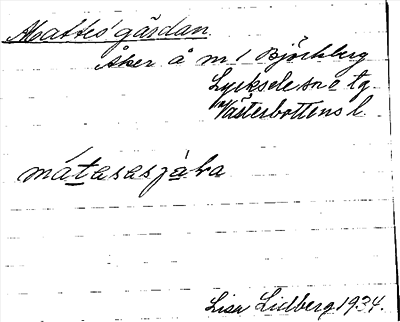 Mattes'gärdan
Åker å m / Björkberg
Lycksele sn o tg
Västerbottens l.
mátasasjäka
Lisa Lidberg 1934.